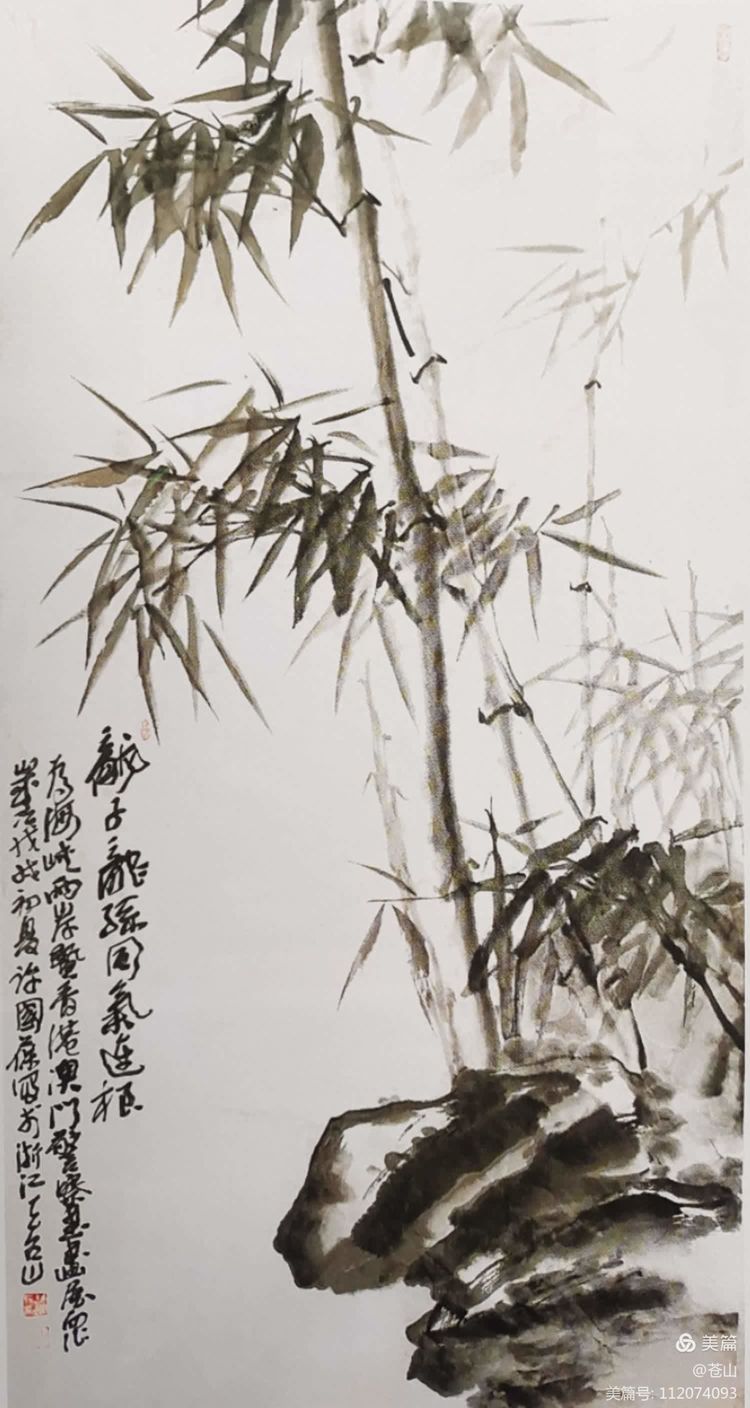 龍子龍孫同氣連根
為海峡兩岸暨香港澳门警察書畫展而作
歲次戊戌初夏许國葆寫於浙江天台山
美篇
@苍山
美篇号: 112074093